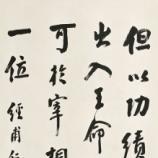 但以功績
出入王命
可於宰相
一位 經甫